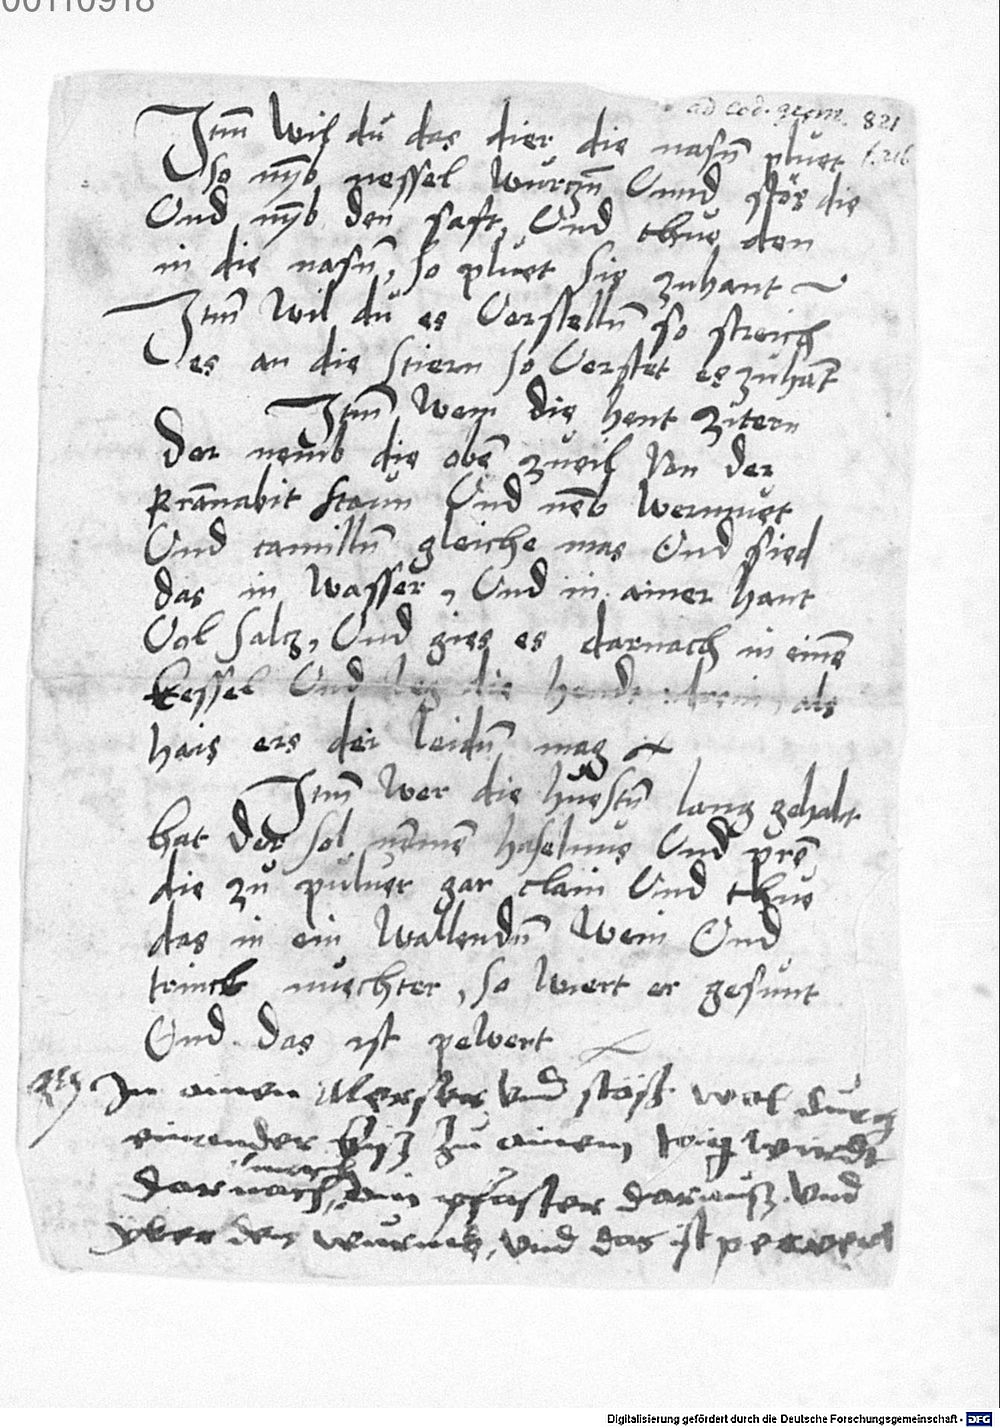 00110918
ad cod. germ. 821
f. 216
Itm̄ wil du das dier die nasn̄ pluet
So nȳb nessel wurczn̄ Vnnd stös die
Vnd nȳb den saft, Vnd thue den
in die nasn̄, so pluet sie zuhant
Itm̄ wil du es Verstelln̄ so streich
es an die stiern so Verstet es zuhāt
Itm̄ wem die hent zitern
Der nemb die obē zweil Von der
kranabit staun Vnd nēb wermuet
Vnd camilln̄ gleiche mas Vnd sied
das in wasser, Vnd in ainer hant
Vol salcz, Vnd gies es darnach in einē
kessel Vnd leg die hende als
hais ers der leidn̄ mag
Itm̄ wer die huestn̄ lang gehabt
hat der sol nēmē haselnus Vnd prē
die zu puluer gar clain Vnd thue
das in ein wallendn̄ wein Vnd
trinck nuechter, so wiert er gesunt
Vnd das ist pewert
In ainen Merser vnd stöss wol durch
einander zu ainem wirdt
darnach ein pflaster daraus vnd
yber den wurmb, vnd das ist pewert
Digitalisierung gefördert durch die Deutsche Forschungsgemeinschaft - DFG